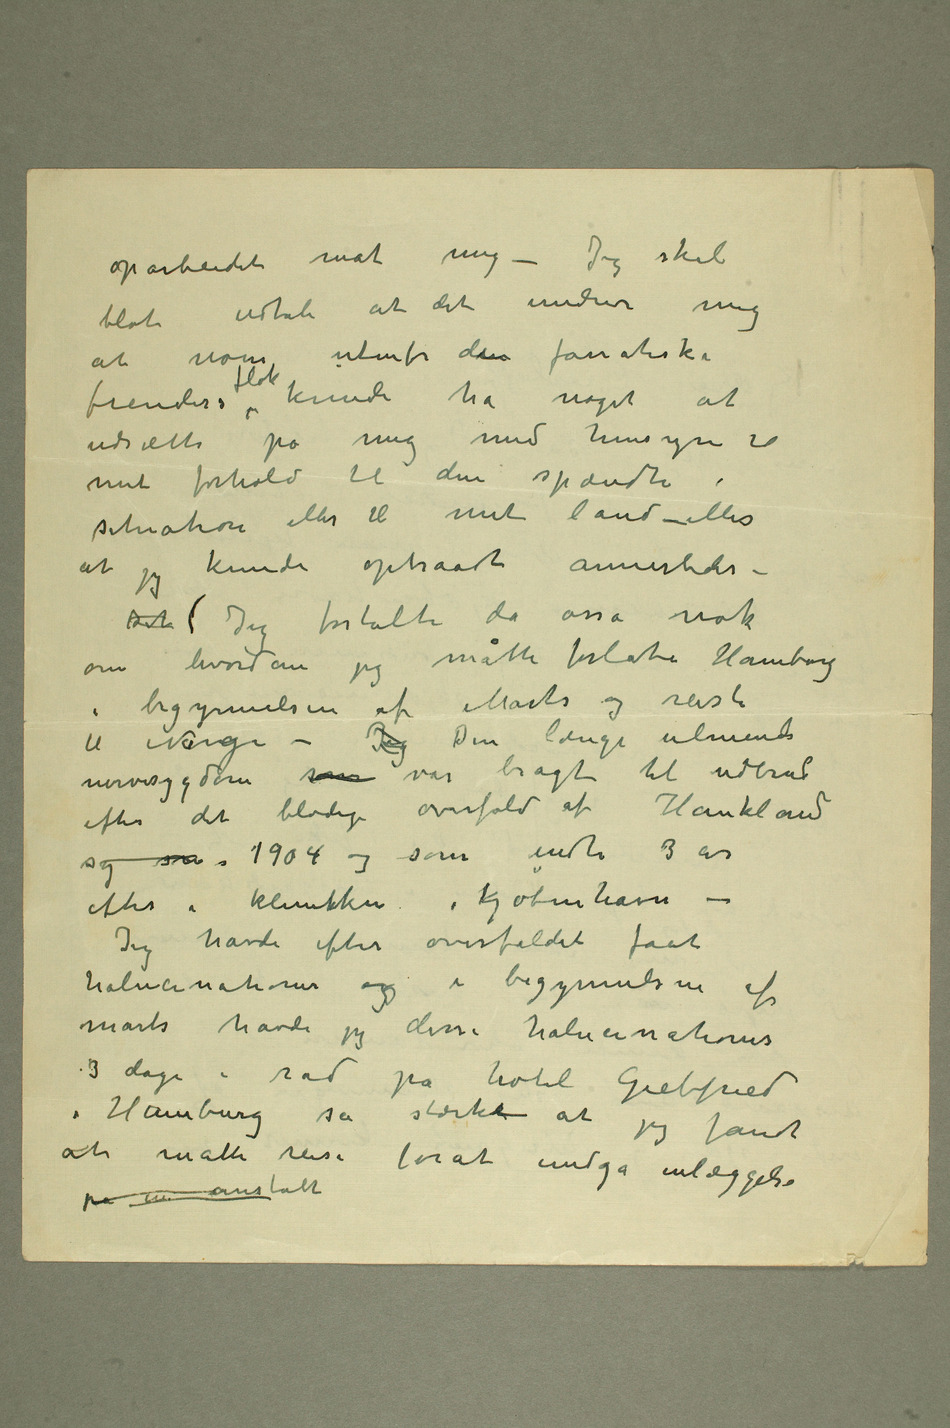 oparbeidet mot mig — Jeg skal
blot udtale at det undrer mig
at nogen utenfor den fanatiske
fiendens flok kunde ha noget at
udsætte på mig med hensyn til
mit forhold til den spændte
situation eller til mit land — eller
at jeg kunde optraadt annerledes –
Det ( Jeg fortalte da også nok
om hvordan jeg måtte forlate Hamborg
i begynnelsen af Marts og reiste
til Norge – Jeg Den længe ulmende
nervesygdom som var bragt til udbrud
efter det blodige overfald af Haukland
og så i 1904 og som endte 3 år
efter i klinikken i Kjøbenhavn —
Jeg havde efter overfaldet faat
halucinationer og i begynnelsen af
marts havde jeg disse halucinationer
3 dage i rad på hotel Giebfried
i Hamburg så stærkt at jeg fandt
at måtte reise forat undgå inlæggelse
på en anstalt